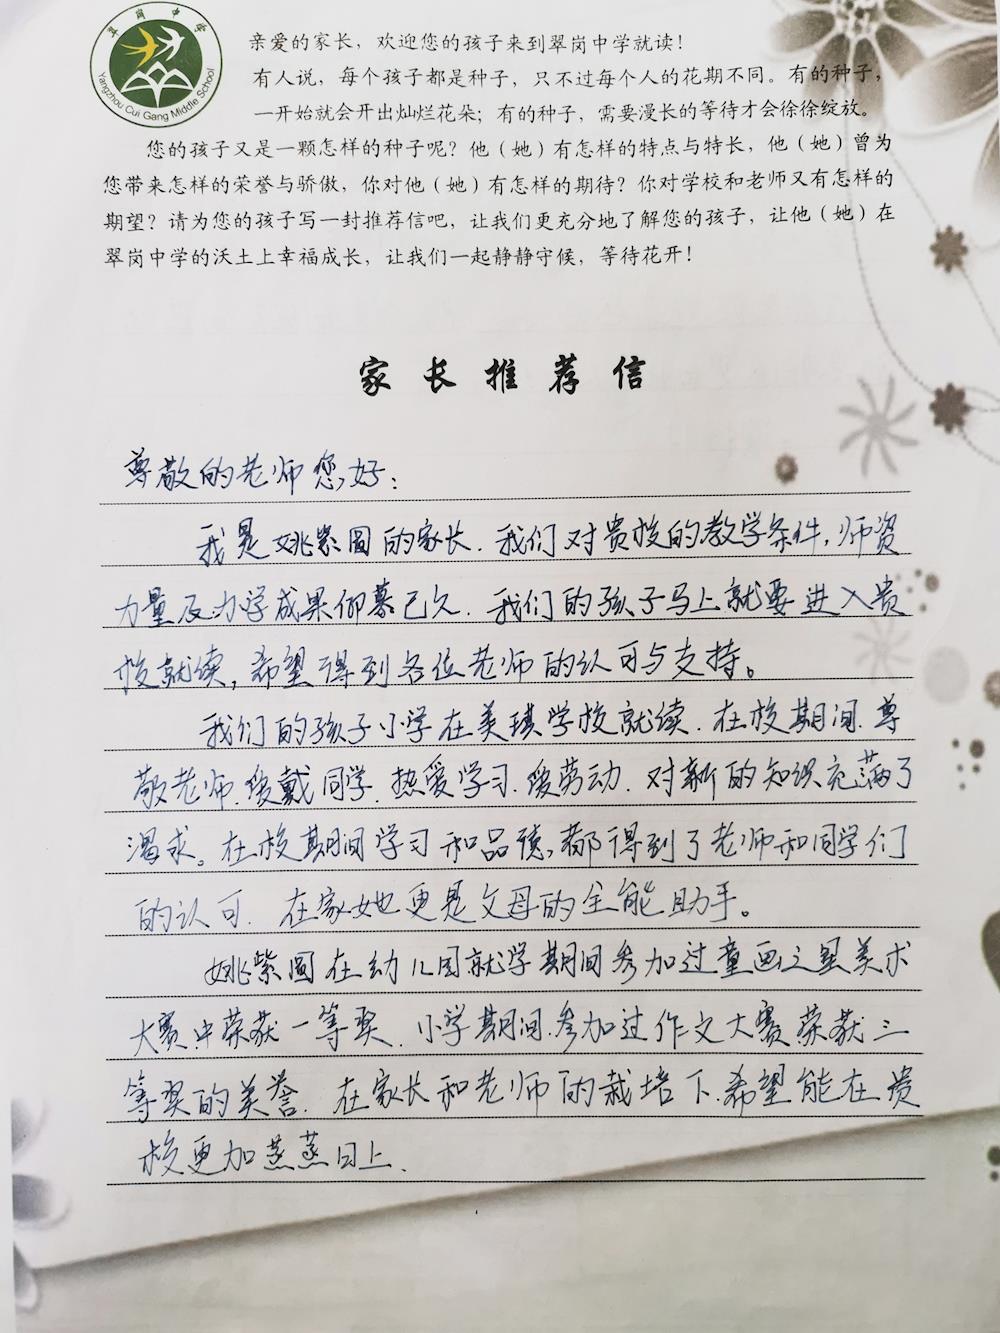 翠岗中学
Yangzhou Cui Gang Middle School
亲爱的家长，欢迎您的孩子来到翠岗中学就读！
有人说，每个孩子都是种子，只不过每个人的花期不同。有的种子，
一开始就会开出灿烂花朵；有的种子，需要漫长的等待才会徐徐绽放。
您的孩子又是一颗怎样的种子呢？他（她）有怎样的特点与特长，他（她）曾为
您带来怎样的荣誉与骄傲，你对他（她）有怎样的期待？你对学校和老师又有怎样的
期望？请为您的孩子写一封推荐信吧，让我们更充分地了解您的孩子，让他（她）在
翠岗中学的沃土上幸福成长，让我们一起静静守候，等待花开！
家长推荐信
尊敬的老师您好：
我是姚紫圆的家长.我们对贵校的教学条件,师资
力量及办学成果仰慕已久.我们的孩子马上就要进入贵
校就读,希望得到各位老师的认可与支持。
我们的孩子小学在美琪学校就读.在校期间.尊
敬老师.爱戴同学.热爱学习.爱劳动.对新的知识充满了
渴求。在校期间学习和品德,都得到了老师和同学们
的认可.在家她更是父母的全能助手。
姚紫圆在幼儿园就学期间参加过童画之星美术
大赛中荣获一等奖.小学期间.参加过作文大赛荣获三
等奖的美誉.在家长和老师的栽培下.希望能在贵
校更加蒸蒸日上.